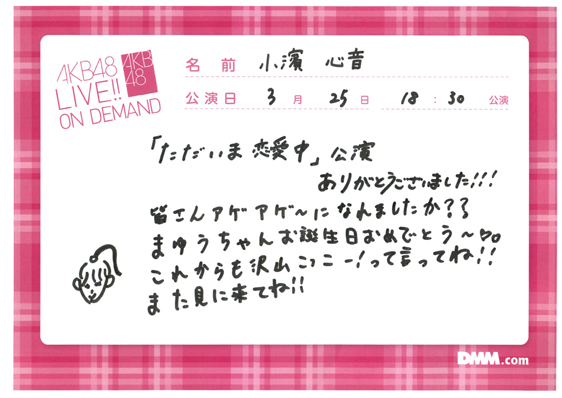 AKB48
LIVE!!
ON DEMAND
AKB
48
名前 小濱 心音
公演日 3月 25日 18:30 公演
「ただいま恋愛中」公演
ありがとうございました!!!
皆さんアゲアゲ〜になれましたか??
まゆうちゃんお誕生日おめでとう〜♡。
これからも沢山こっこー!って言ってね!!
また見に来てね!!
DMM.com